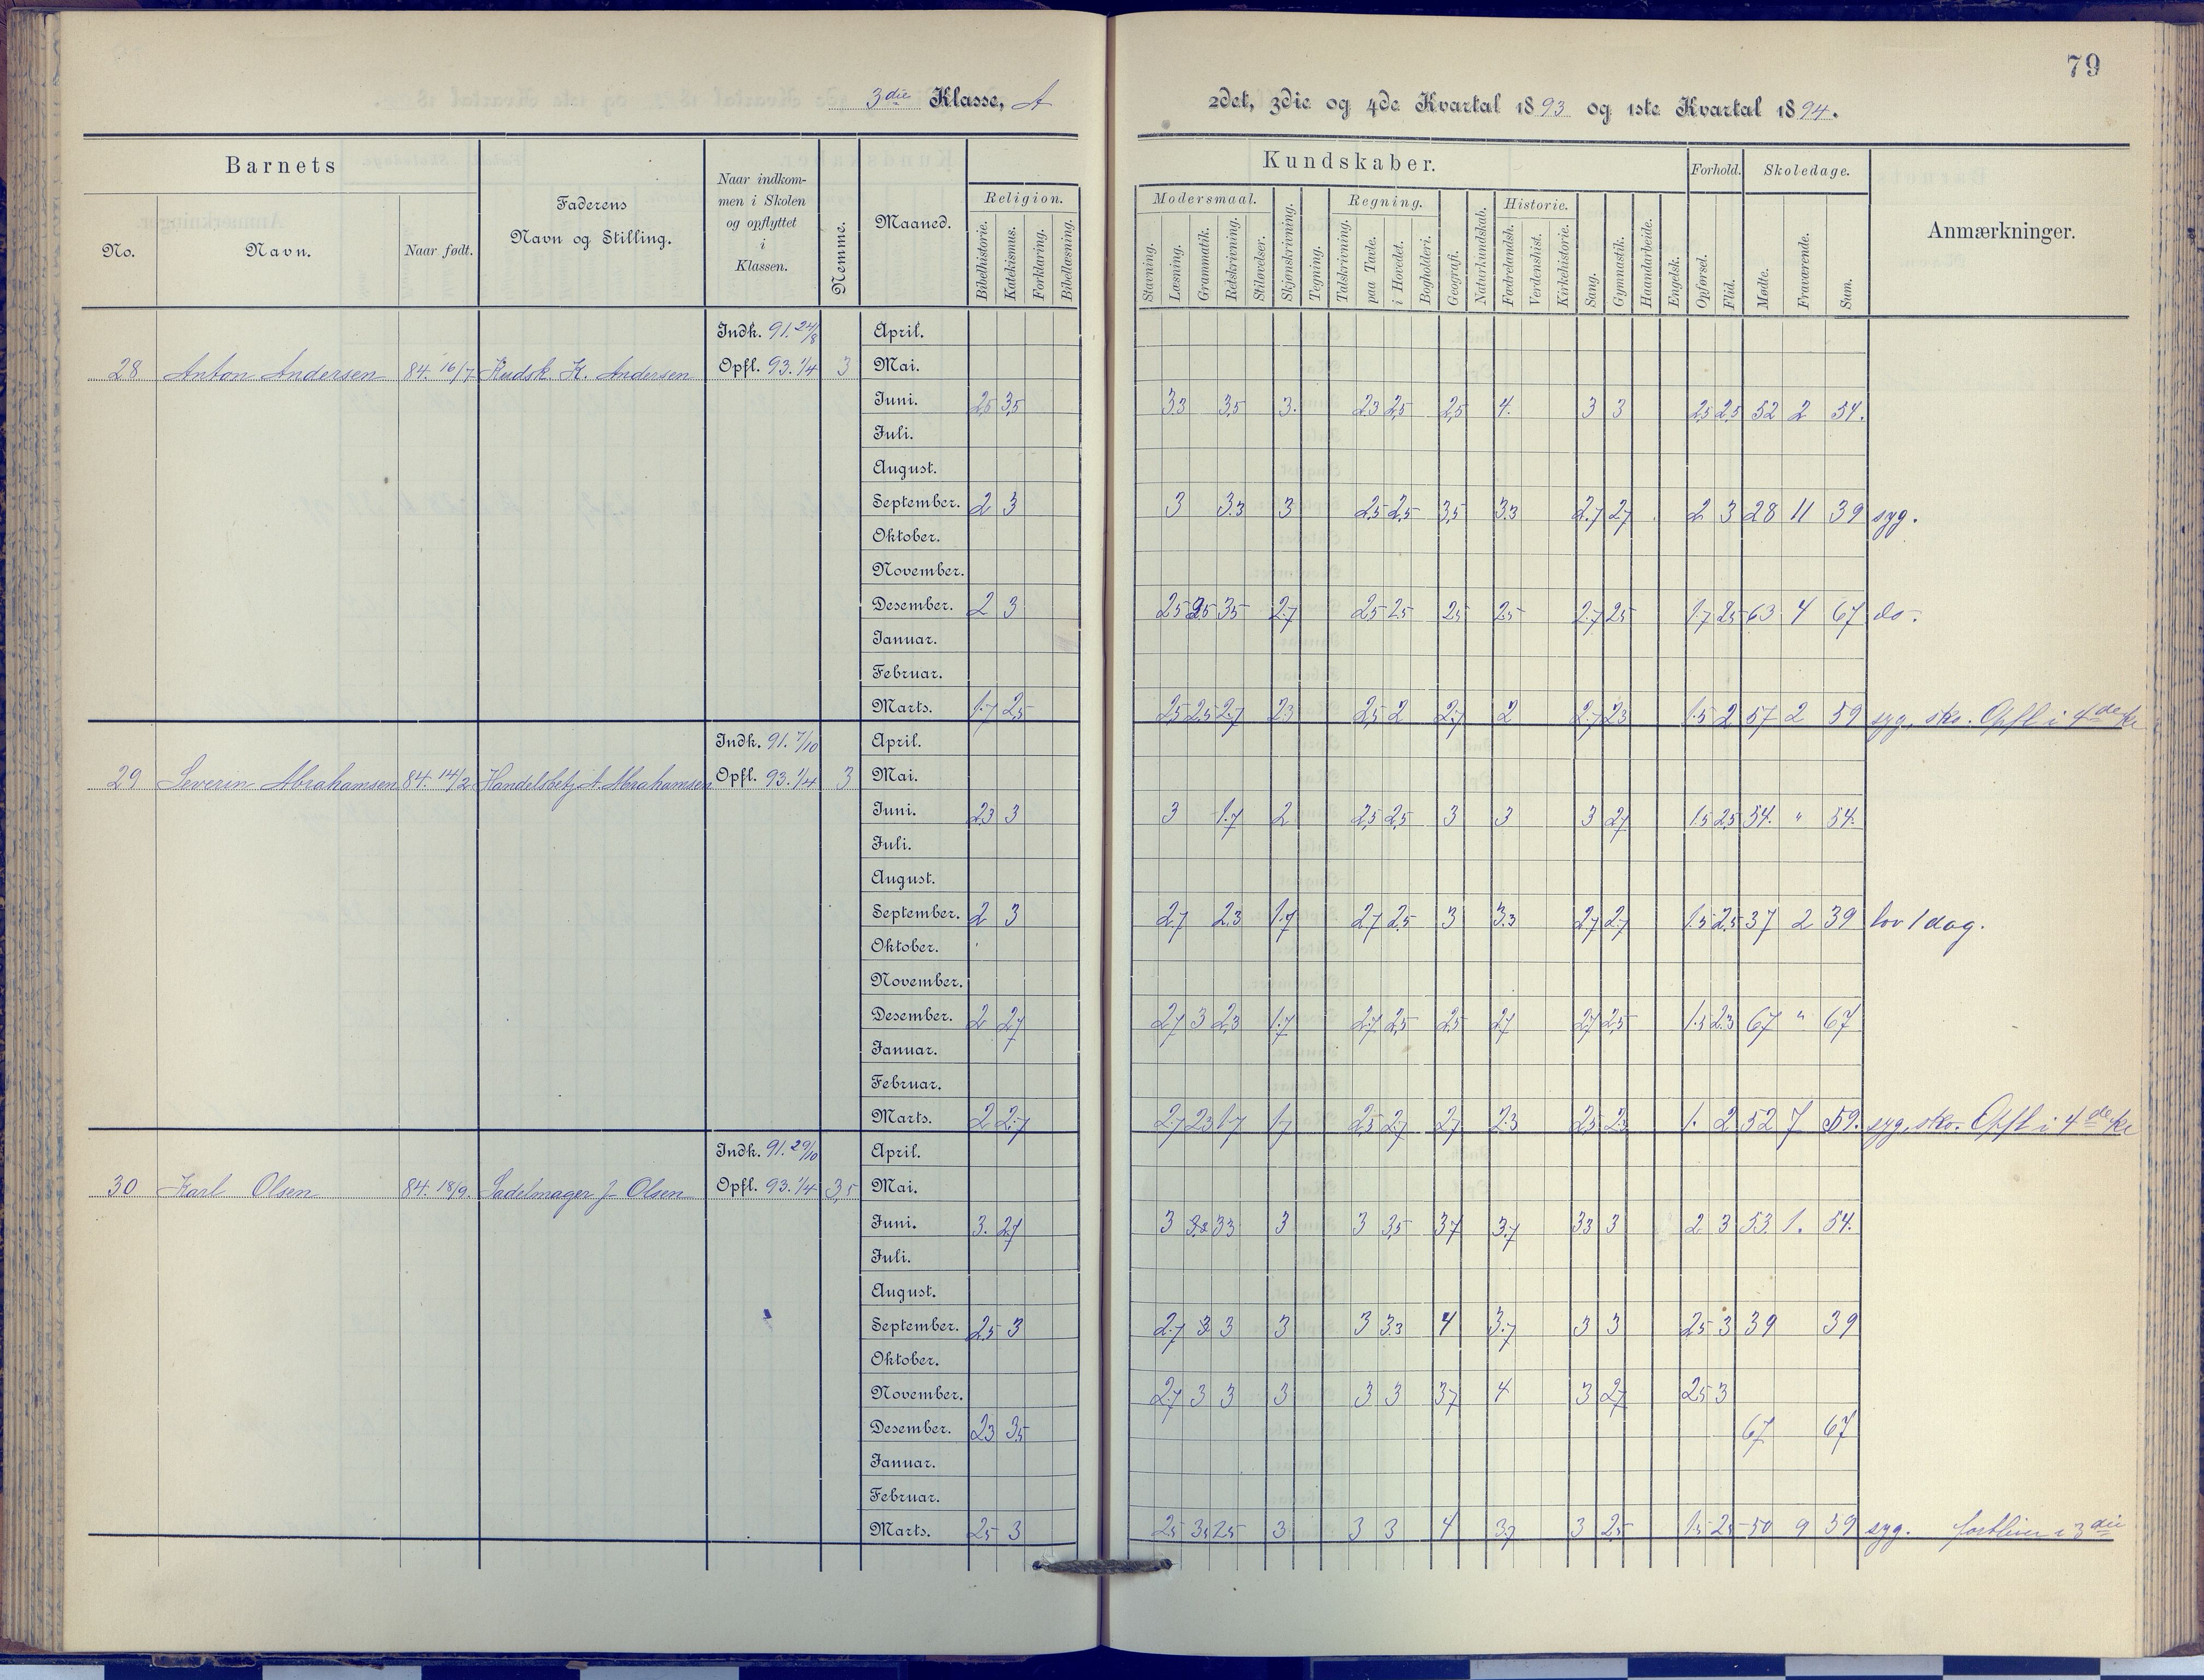 79
3die Klasse, A
2det, 3die og 4de Kvartal 1893 og 1ste Kvartal 1894.
Barnets
No.
Navn.
Naar født.
Faderens
Navn og Stilling.
Naar indkom-
men i Skolen
og opflyttet
i
Klassen.
Nemme.
Maaned.
Kundskaber.
Religion.
Bibelhistorie.
Katekismus.
Forklaring.
Bibellæsning.
Modersmaal.
Stavning.
Læsning.
Grammatik.
Retskrivning.
Stiløvelser.
Skjønskrivning.
Tegning.
Regning.
Talskrivning.
paa Tavle.
i Hovedet.
Bogholderi.
Geografi.
Naturkundskab.
Historie.
Fædrelandsh.
Verdenshist.
Kirkehistorie.
Sang.
Gymnastik.
Haandarbeide.
Engelsk.
Forhold.
Opførsel.
Flid.
Skoledage.
Mødte.
Fraværende.
Sum.
Anmærkninger.
Indk. 91. 24/8 April.
28 Anton Andersen 84. 16/7 Kudsk K. Andersen Opfl. 93. 1/4 3 Mai.
Juni. 2,5 3,5 3.3 3,5 3. 2.3 2,5 2,5 4. 3 3 2,5 2,5 52 2 54.
Juli.
August.
September. 2 3 3 3.3 3 2,5 2,5 3,5 3.3 2.7 2.7 2 3 28 11 39 syg.
Oktober.
November.
Desember. 2 3 2,5 2,5 3,5 2.7 2,5 2,5 2,5 2,5 2.7 2,5 1.7 2,5 63 4 67 do.
Januar.
Februar.
Marts. 1.7 2,5 2,5 2,5 2.7 2.3 2,5 2 2.7 2 2.7 2.3 1.5 2 57 2 59 syg, sko. Opfl i 4de kl
Indk. 91. 7/10 April.
29 Severin Abrahamsen 84. 14/2 Handelsbetj A. Abrahamsen Opfl. 93. 1/4 3 Mai.
Juni. 2.3 3 3 1.7 2 2,5 2,5 3 3 3 2.7 1.5 2,5 54. " 54.
Juli.
August.
September. 2 3 2.7 2.3 1.7 2.7 2,5 3 3.3 2.7 2.7 1.5 2,5 37 2 39 lov 1 dag.
Oktober.
November.
Desember. 2 2.7 2.7 3 2.3 1.7 2.7 2,5 2,5 2.7 2.7 2,5 1.5 2.3 67 " 67
Januar.
Februar.
Marts. 2 2.7 2.7 2.3 1.7 1.7 2,5 2.7 2.7 2.3 2,5 2.3 1. 2 52 7 59. syg, sko. Opfl i 4de kl
Indk. 91. 29/10 April.
30 Karl Olsen 84. 18/9. Sadelmager J. Olsen Opfl. 93. 1/4 3,5 Mai.
Juni. 3. 2.7 3 3.3 3 3 3,5 3.7 3.7 3.3 3 2 3 53. 1. 54.
Juli.
August.
September. 2.5 3 2.7 3 3 3 3 3.3 4 3.7 3 3 2,5 3 39 39
Oktober.
November. 2.7 3 3 3 3 3 3.7 4 3 2.7 2,5 3
Desember. 2.3 3,5 67 67
Januar.
Februar.
Marts. 2,5 3 2,5 3,5 2,5 3 3 3 4 3.7 3 2,5 1.5 2,5 50 9 59 syg. forbliver i 3die